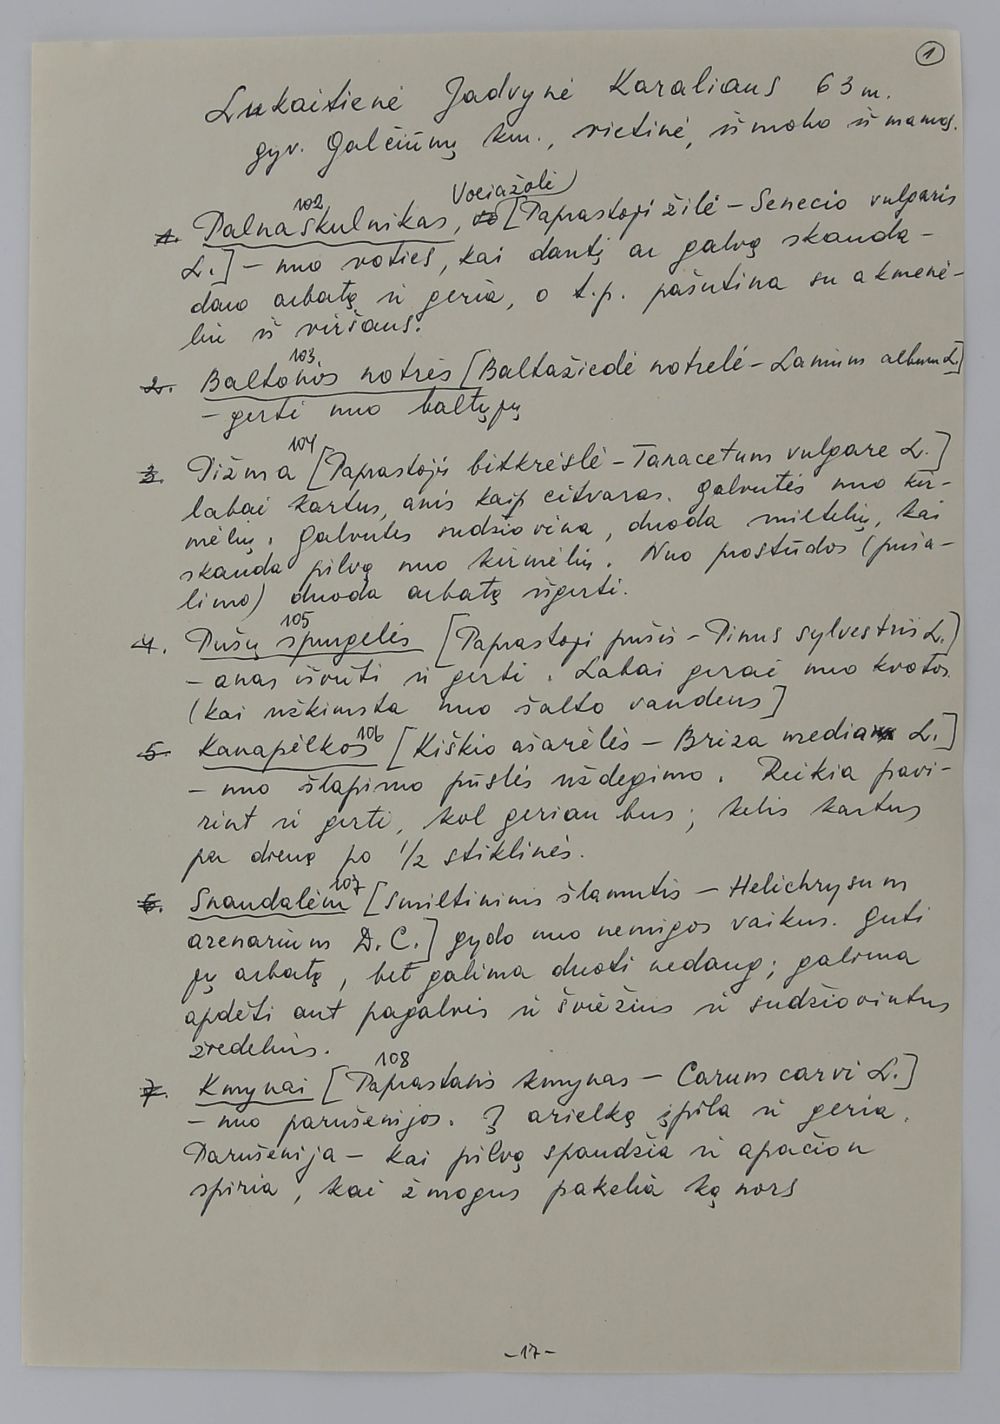 1
Lukaitienė Jadvynė Karaliaus 63 m.
gyv. Galčiūnų km., vietinė, išmoko iš mamos.
Vočiažolė
102
1. Dalnaskulnikas, [Paprastoji žilė – Senecio vulgaris
L.] – nuo voties, kai dantį ar galvą skauda –
daro arbatą ir geria, o t.p. pašutina su akmenė-
liu iš viršaus.
103
2. Baltonos notrės [Baltažiedė notrelė – Lamium album L.]
– gerti nuo baltųjų
104
3. Pižma [Paprastoji bitkrėslė – Tanacetum vulgare L.]
labai kartus, anis kaip citvaras. Galvutės nuo kir-
mėlių. Galvutes sudžiovina, duoda miltelių, kai
skauda pilvą nuo kirmėlių. Nuo prostūdos (peršа-
limo) duoda arbatą išgerti.
105
4. Pušų spurgelės [Paprastoji pušis – Pinus sylvestris L.]
– anas išvirti ir gerti. Labai gerai nuo kvotos
(kai užkimsta nuo šalto vandens]
106
5. Kanapėlkos [Kiškio ašarėlės – Briza media L.]
– nuo šlapimo pūslės uždegimo. Reikia pavi-
rint ir gerti, kol geriau bus; kelis kartus
per dieną po 1/2 stiklinės.
107
6. Snaudalėm [Smiltininis šlamutis – Helichrysum
arenarium D.C.] gydo nuo nemigos vaikus. Gerti
jų arbatą, bet galima duoti nedaug; galima
apdėti ant pagalvės ir šviežius ir sudžiovintus
žiedelius.
108
7. Kmynai [Paprastasis kmynas – Carum carvi L.]
– nuo parušenijos. Į arielką įpila ir geria.
Parušenija – kai pilvą spaudžia ir apačion
spiria, kai žmogus pakelia ką nors
–17–